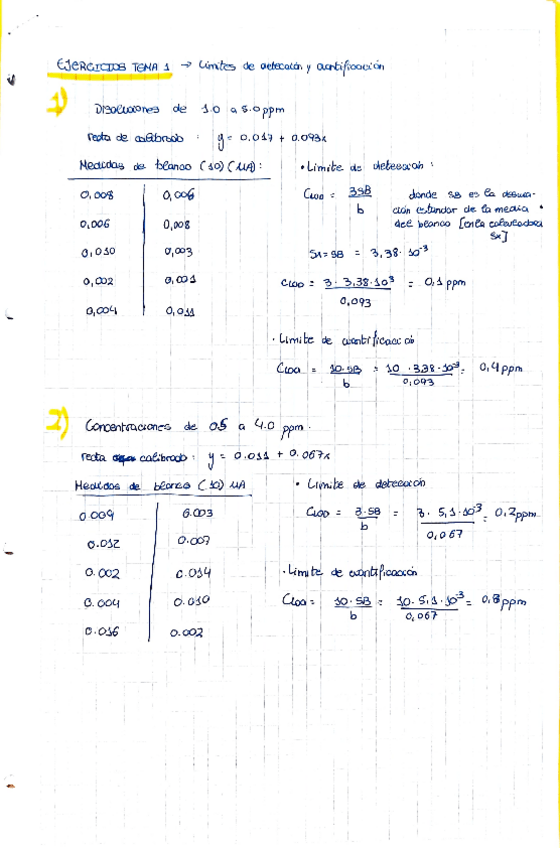 EJERCICIOS TEMA 1 → Límites de detección y cuantificación
1) Disoluciones de 1.0 a 5.0 ppm
recta de calibrado : y = 0.017 + 0.093x
Medidas de blanco (10) (UA) :
0,008 0,006
0,006 0,008
0,010 0,003
0,002 0,001
0,004 0,011
• Limite de detección :
CLOD = 3SB / b donde SB es la desvia-
ción estándar de la media
del blanco [en la calculadora
Sx]
Sx = SB = 3,38 · 10⁻³
CLOD = 3 · 3,38 · 10⁻³ / 0,093 = 0,1 ppm
· Limite de cuantificación
CLOQ = 10 · SB / b = 10 · 3.38 · 10⁻³ / 0,093 = 0,4 ppm
2) Concentraciones de 0.5 a 4.0 ppm.
recta calibrado : y = 0.011 + 0.067x
Medidas de blanco (10) UA
0.009 0.003
0.012 0.007
0.002 0.014
0.004 0.010
0.016 0.002
• Limite de detección
CLOD = 3 · SB / b = 3 · 5,1 · 10⁻³ / 0,067 = 0,2 ppm
· Limite de cuantificación
CLOQ = 10 · SB / b = 10 · 5,1 · 10⁻³ / 0,067 = 0,8 ppm